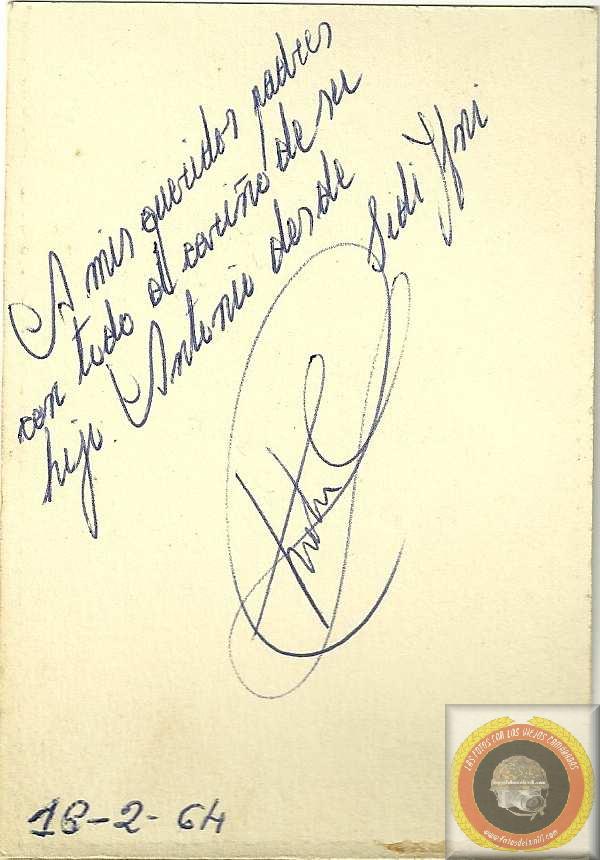 A mis queridos padres
con todo el cariño de su
hijo Antonio desde Sidi Ifni
18-2-64
LAS FOTOS CON LOS VIEJOS CAMARADAS